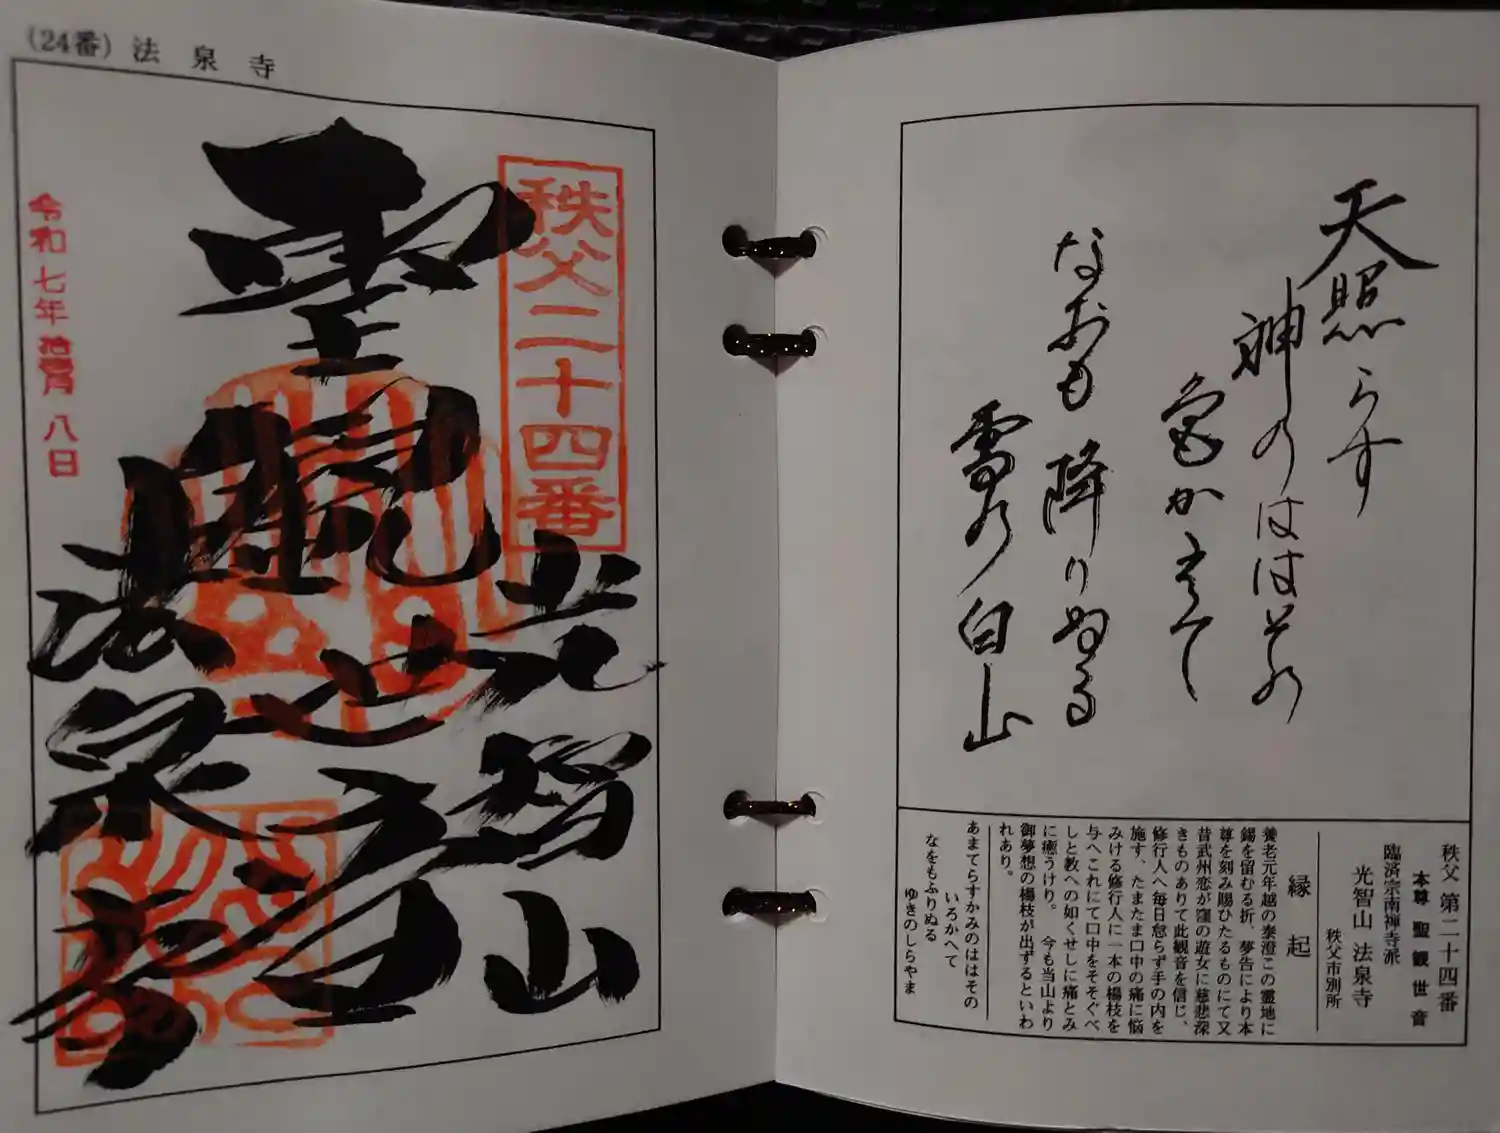 (24番) 法泉寺
秩父二十四番
聖観世音
光智山
法泉寺
令和七年拾壱月八日
天照らす
神のははその
色かえて
なおも降りぬる
雪の白山
秩父 第二十四番
本尊 聖観世音
臨済宗南禅寺派
光智山 法泉寺
秩父市別所
縁起
養老元年越の泰澄この霊地に
錫を留むる折、夢告により本
尊を刻み賜ひたるものにて又
昔武州恋が窪の遊女に慈悲深
きものありて此観音を信じ、
修行人へ毎日怠らず手の内を
施す、たまたま口中の痛に悩
みける修行人に一本の楊枝を
与へこれにて口中をそそぐべ
しと教への如くせしに痛とみ
に癒うけり。今も当山より
御夢想の楊枝が出ずるといわ
れあり。
あまてらすかみのははその
いろかへて
なをもふりぬる
ゆきのしらやま